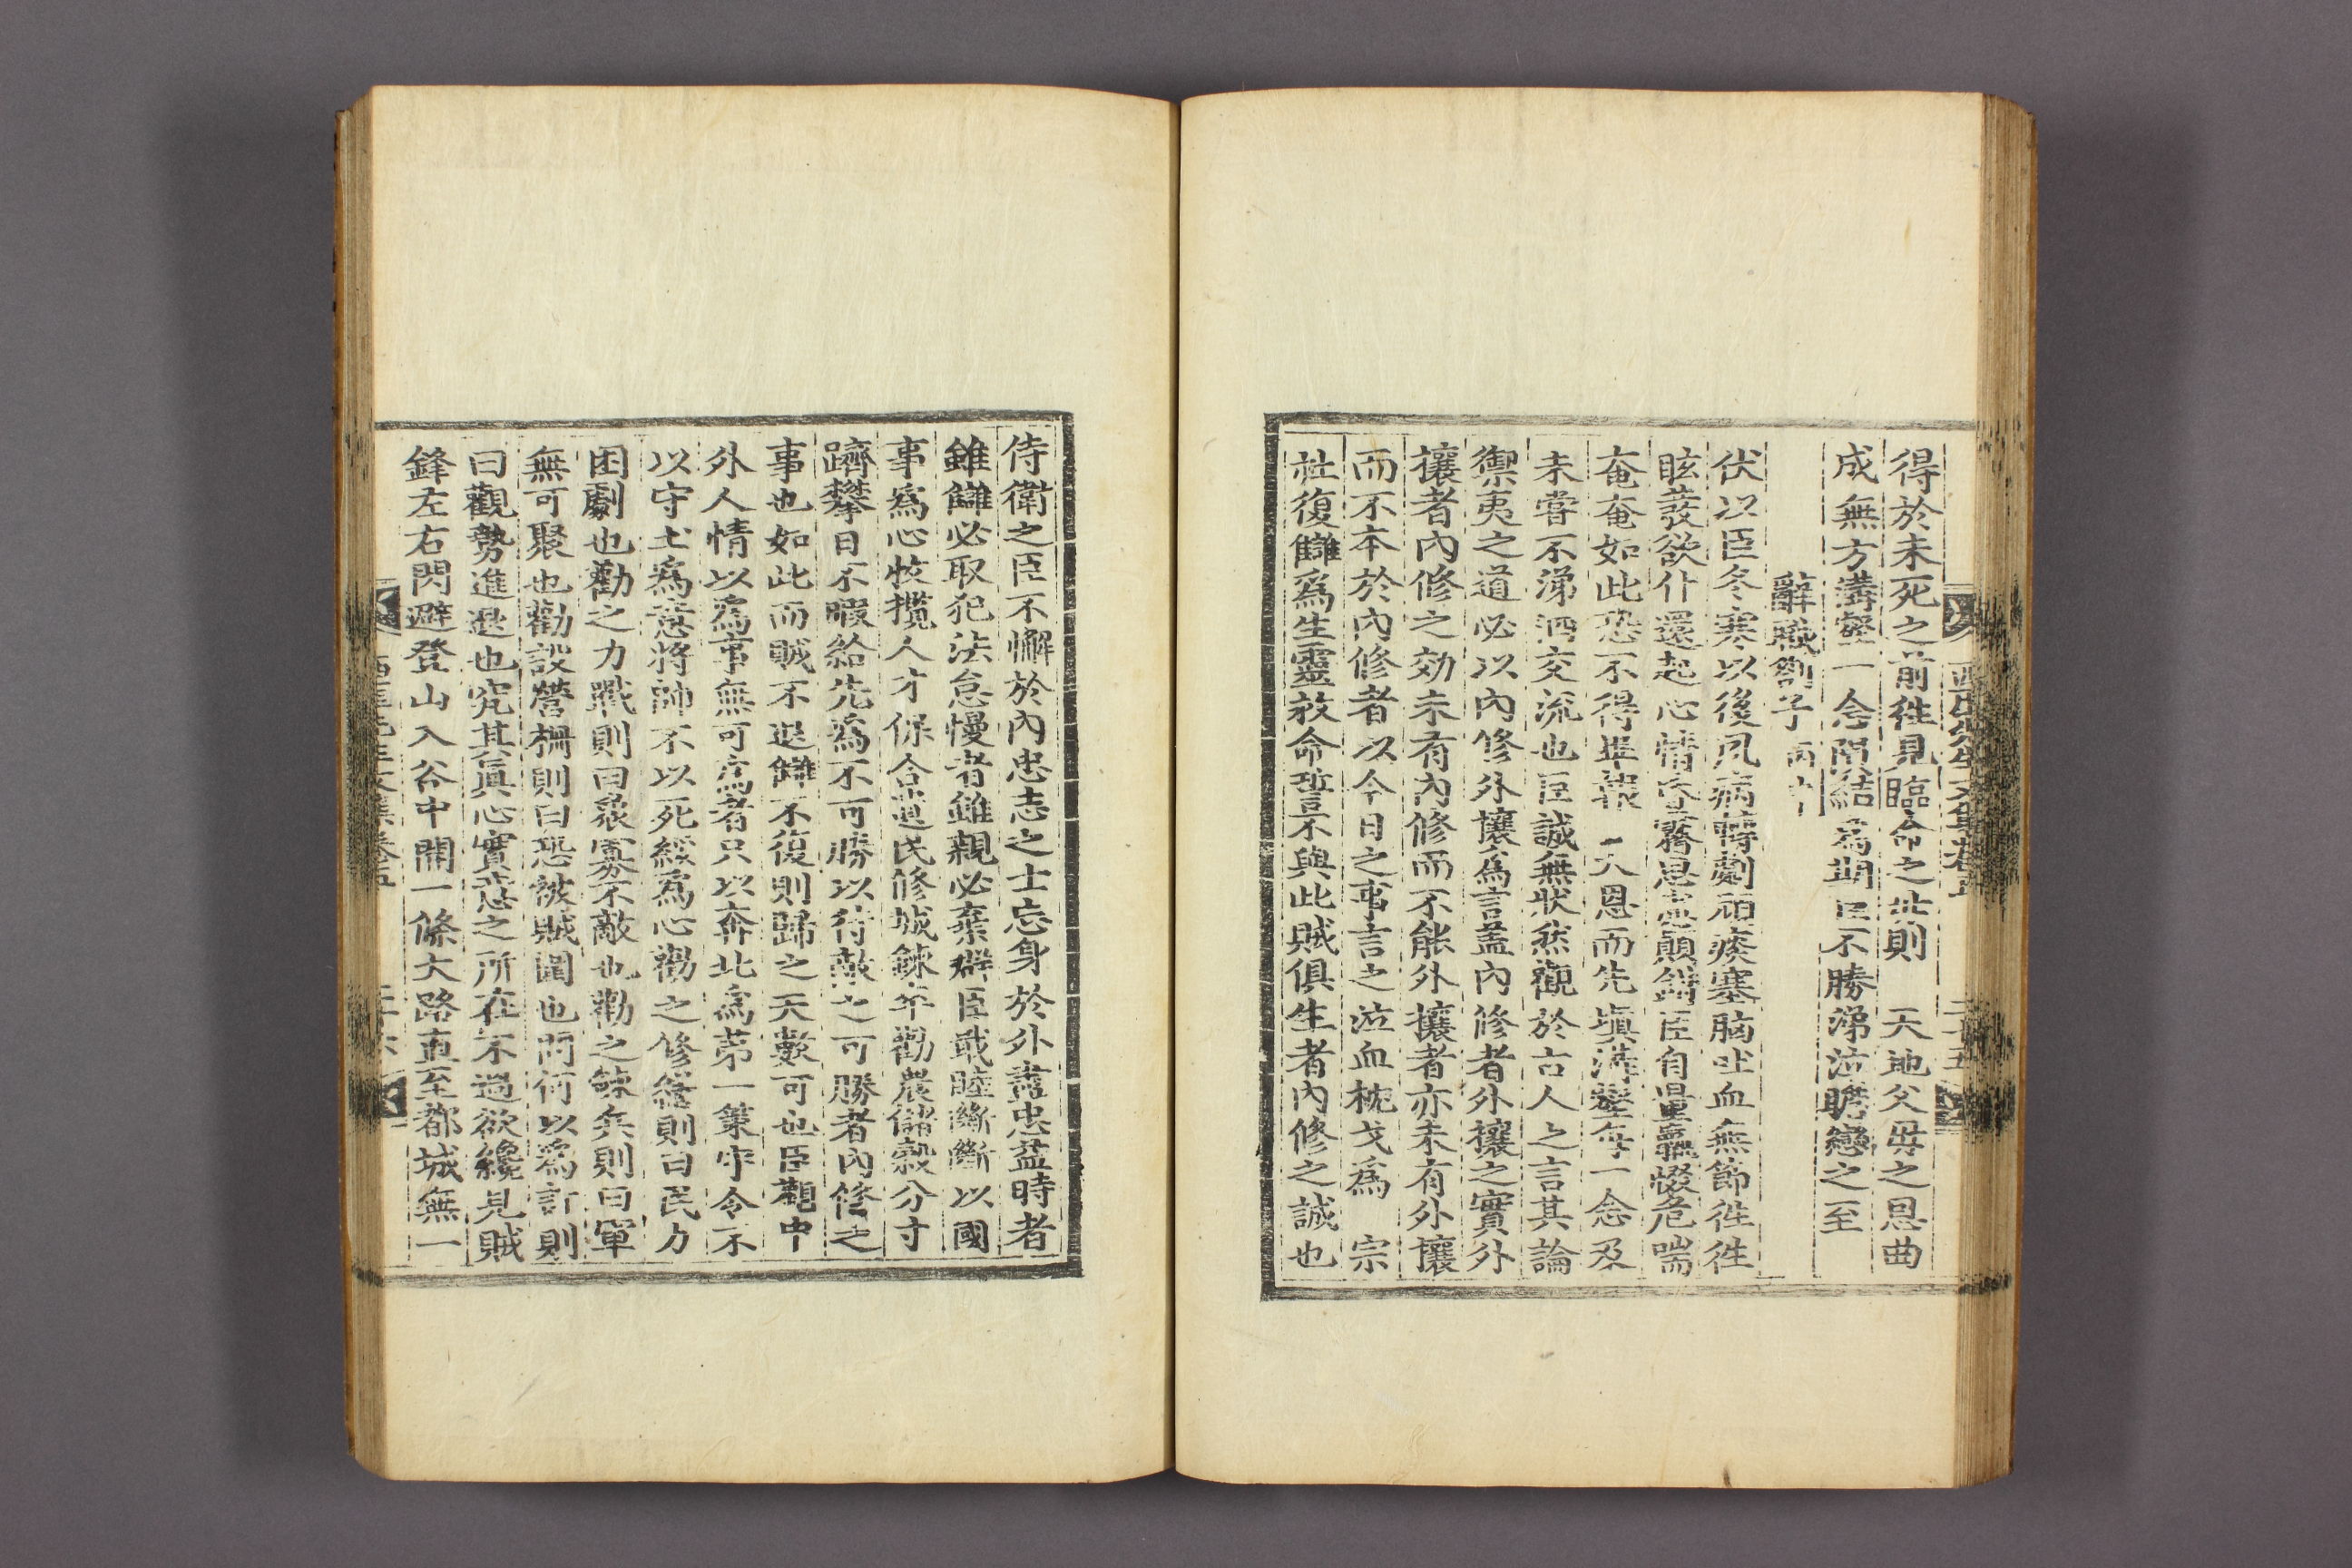 西厓先生文集卷五 二十五
得於未死之前往見臨命之時則 天地父母之恩曲
成無方溝壑一念開結爲期臣不勝涕泣瞻戀之至
辭職劄子 丙申
伏以臣冬寒以後夙病轉劇頑痰塞胸吐血無節往往
眩發欲仆還起心情昏霧思慮顚錯臣自量羸惙危喘
奄奄如此恐不得畢報 天恩而先塡溝壑每一念及
未嘗不涕泗交流也臣誠無狀然觀於古人之言其論
禦夷之道必以內修外攘爲言盖內修者外攘之實外
攘者內修之効未有內修而不能外攘者亦未有外攘
而不本於內修者以今日之事言之泣血枕戈爲 宗
社復讎爲生靈救命誓不與此賊俱生者內修之誠也
侍衛之臣不懈於內忠志之士忘身於外盡忠益時者
雖讎必取犯法怠慢者雖親必棄群臣戢睦斷斷以國
事爲心收攬人才保合遺民修城鍊卒勸農儲穀分寸
躋攀日不暇給先爲不可勝以待敵之可勝者內修之
事也如此而賊不退讎不復則歸之天數可也臣觀中
外人情以爲事無可爲者只以奔北爲第一策守令不
以守土爲意將帥不以死綏爲心勸之修繕則曰民力
困劇也勸之力戰則曰衆寡不敵也勸之鍊兵則曰軍
無可聚也勸設營柵則曰恐被賊圍也問何以爲計則
曰觀勢進退也究其眞心實意之所在不過欲纔見賊
鋒左右閃避登山入谷中開一條大路直至都城無一
西厓先生文集卷五 二十六